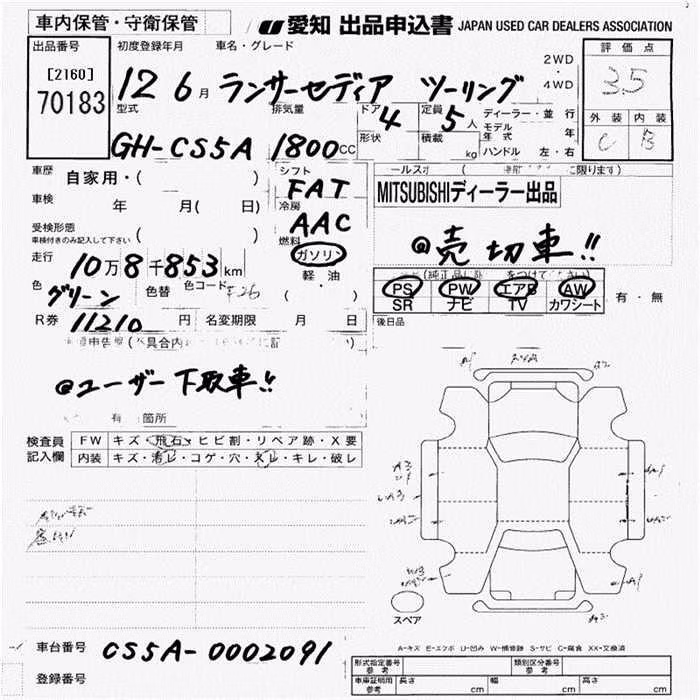 車内保管・守衛保管
愛知 出品申込書 JAPAN USED CAR DEALERS ASSOCIATION
出品番号 初度登録年月 車名・グレード 2WD・4WD 評価点
[2160] 70183 12 6月 ランサーセディア ツーリング 3.5
型式 排気量 ドア 4 定員 5人 ディーラー・並行
GH-CS5A 1800CC 形状 積載 kg モデル年式 年 外装 内装
ハンドル 左・右 C B
車歴 自家用・( ) シフト FAT
MITSUBISHIディーラー出品
車検 年 月( 日) 冷房 AAC
受検形態 車検付きのみ記入して下さい ( ) 燃料 ガソリン
@売切車!!
走行 10万8千853km 軽・油
色 グリーン 色替 色コード ( )
PS PW エアB AW 有・無
SR ナビ TV カワシート
R券 11210円 名変期限 月 日
後日品
@ユーザー下取車!!
有 箇所
検査員記入欄 FW キズ・飛石・ヒビ割・リペア跡・X要
内装 キズ・汚レ・コゲ・穴・スレ・キレ・破レ
スペア
車台番号 CS5A-0002091
A-キズ E-エクボ U-凹み W-補修跡 S-サビ C-腐食 XX-交換済
登録番号
形式指定番号 参考 類別区分番号 参考
車庫証明用 参考 長さ cm 幅 cm 高さ cm